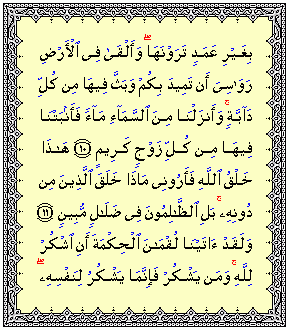 بِغَيْرِ عَمَدٍ تَرَوْنَهَا ۖ وَأَلْقَىٰ فِى ٱلْأَرْضِ
رَوَٰسِىَ أَن تَمِيدَ بِكُمْ وَبَثَّ فِيهَا مِن كُلِّ
دَآبَّةٍ ۚ وَأَنزَلْنَا مِنَ ٱلسَّمَآءِ مَآءً فَأَنۢبَتْنَا
فِيهَا مِن كُلِّ زَوْجٍ كَرِيمٍ ١٠ هَٰذَا
خَلْقُ ٱللَّهِ فَأَرُونِى مَاذَا خَلَقَ ٱلَّذِينَ مِن
دُونِهِۦ ۚ بَلِ ٱلظَّٰلِمُونَ فِى ضَلَٰلٍ مُّبِينٍ ١١
وَلَقَدْ ءَاتَيْنَا لُقْمَٰنَ ٱلْحِكْمَةَ أَنِ ٱشْكُرْ
لِلَّهِ ۚ وَمَن يَشْكُرْ فَإِنَّمَا يَشْكُرُ لِنَفْسِهِۦ ۖ